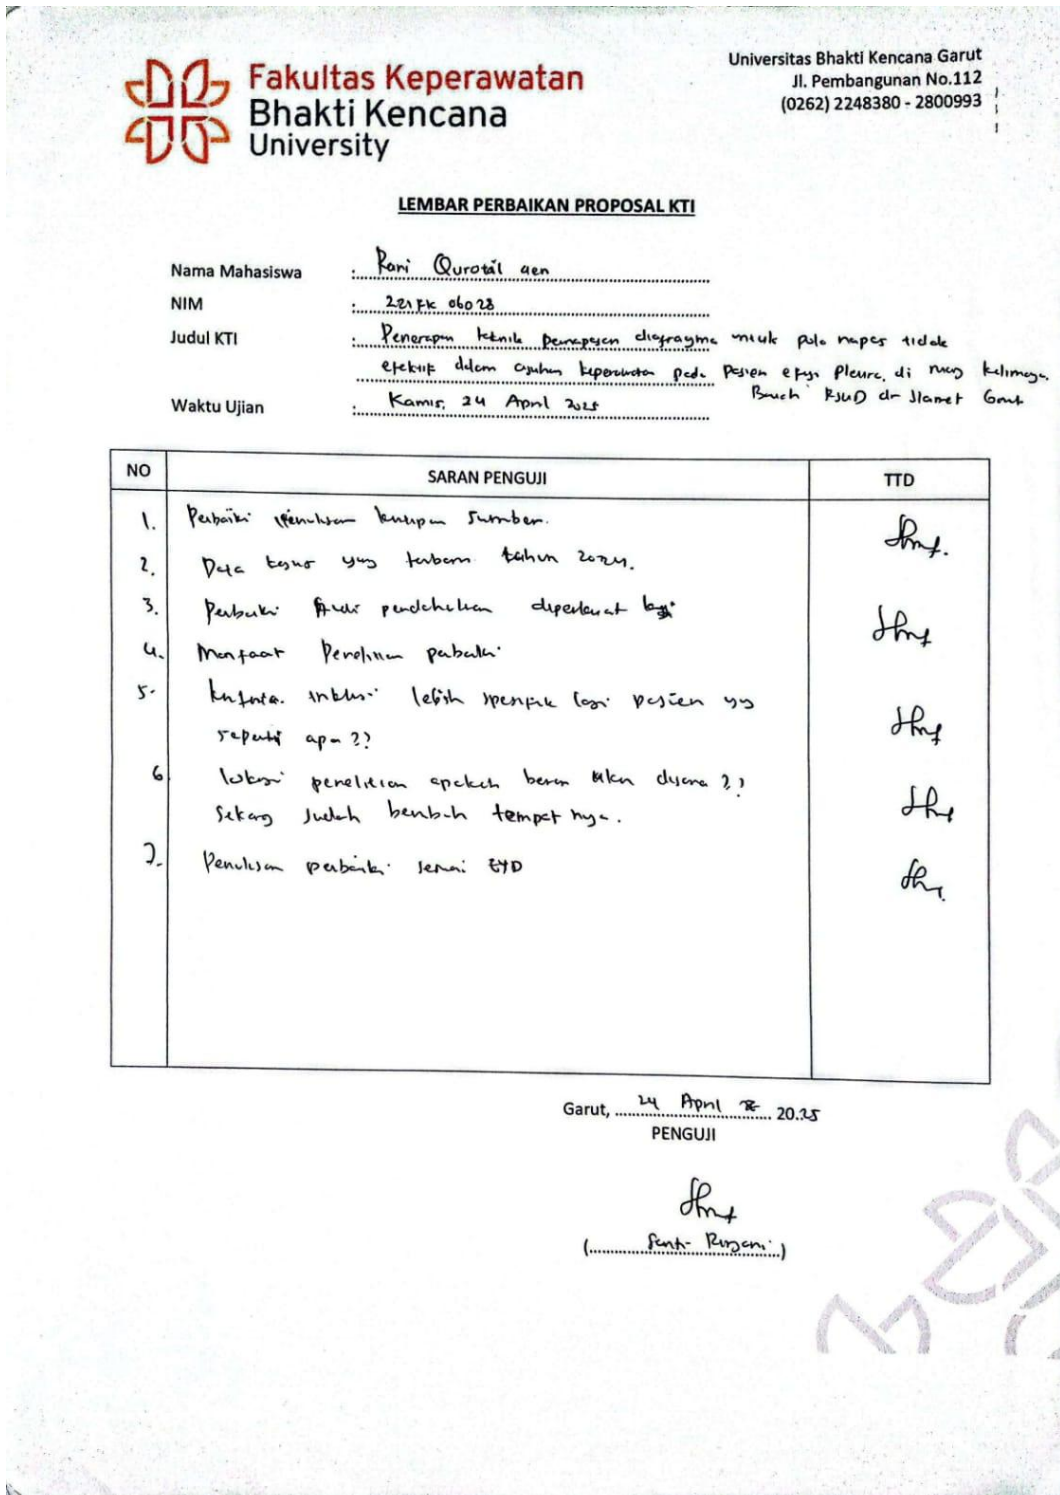 Fakultas Keperawatan
Bhakti Kencana
University
Universitas Bhakti Kencana Garut
Jl. Pembangunan No.112
(0262) 2248380 - 2800993
LEMBAR PERBAIKAN PROPOSAL KTI
Nama Mahasiswa : Rani Qurotal aen
NIM : 221 FK 06028
Judul KTI : Penerapan teknik pernapasan diafragma untuk pola napas tidak
efektif dalam asuhan keperawatan pada pasien efusi Pleura, di ruang
RSUD dr Slamet Garut
Waktu Ujian : Kamis, 24 April 2025
NO SARAN PENGUJI TTD
1. Perbaiki Penulisan kutipan Sumber.
2. Data kasus yang terbaru tahun 2024.
3. Perbaiki pendahuluan diperkuat lagi
4. Manfaat Penelitian perbaiki
5. kriteria inklusi lebih spesifik lagi pasien yg
seperti apa ??
6 lokasi penelitian apakah benar akan disana ??
Sekarang Sudah berubah tempat nya.
7. Penulisan perbaiki sesuai EYD
Garut, 24 April 2025
PENGUJI
(Santi Rinjani)